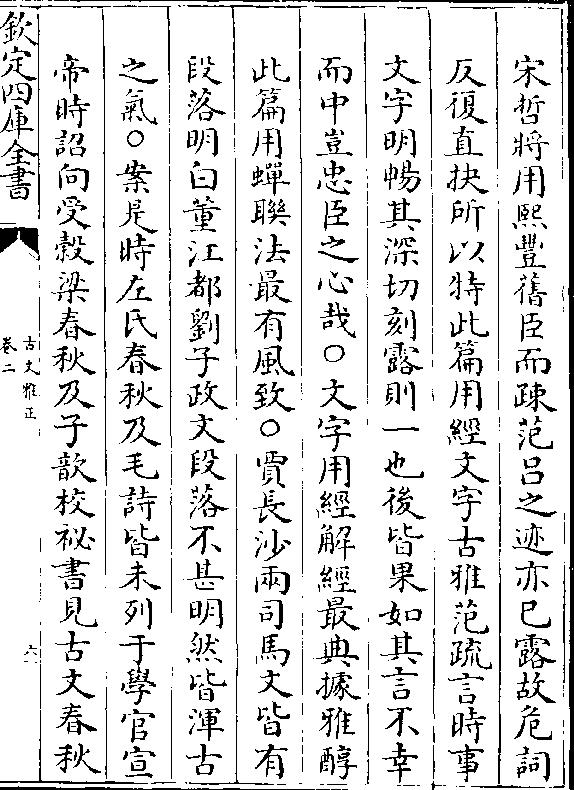 宋哲將用熙豐舊臣而疎范吕之迹亦已露故危詞
反復直抉所以特此篇用經文字古雅范疏言時事
文字明暢其深切刻露則一也後皆果如其言不幸
而中豈忠臣之心哉○文字用經解經最典據雅醇
此篇用蟬聯法最有風致○賈長沙兩司馬文皆有
段落明白董江都劉子政文段落不甚明然皆渾古
之氣○案是時左氏春秋及毛詩皆未列于學官宣
帝時詔向受榖梁春秋及子歆校祕書見古文春秋
欽定四庫全書
古文雅正
卷二
六